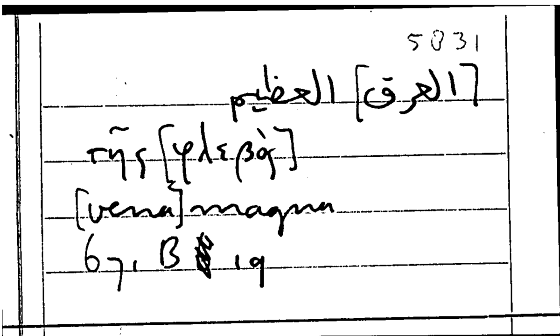 5831
[العرق] العظيم
τῆς [φλεβὸς]
[vena] magna
67, B 19